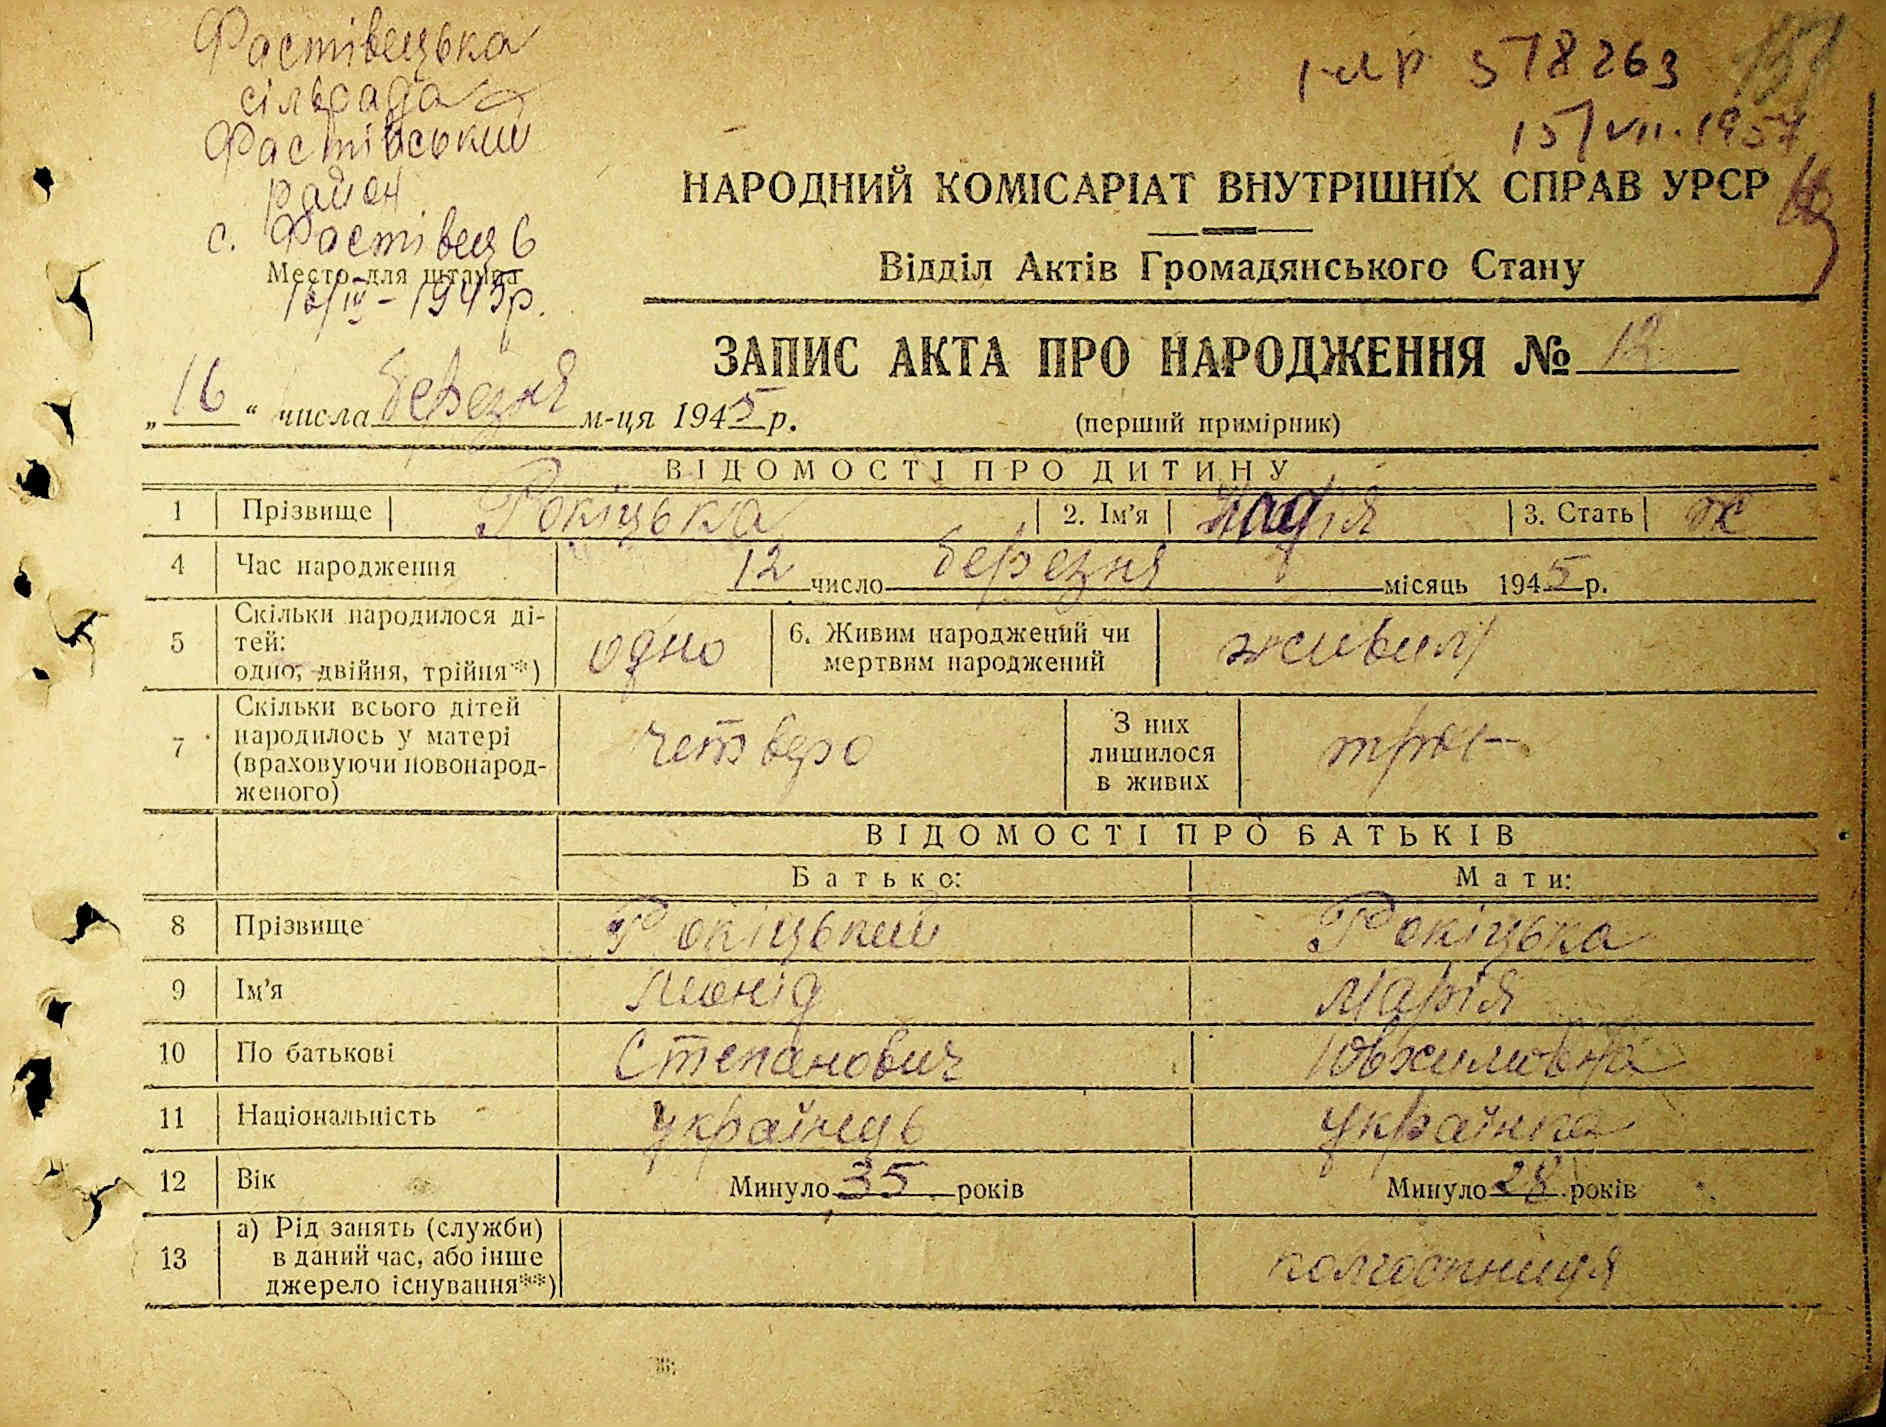 Фастівецька
сільрада
Фастівський
район
с. Фастівець
Место для штампа
16/III - 1945р.
578263
15/VII. 1957
НАРОДНИЙ КОМІСАРІАТ ВНУТРІШНІХ СПРАВ УРСР
Відділ Актів Громадянського Стану
ЗАПИС АКТА ПРО НАРОДЖЕННЯ №
„16“ числа березня м-ця 1945 р.
(перший примірник)
ВІДОМОСТІ ПРО ДИТИНУ
1 Прізвище Рокіцька 2. Ім'я Надія 3. Стать ж
4 Час народження 12 число березня місяць 1945 р.
5 Скільки народилося ді-
тей:
одно, двійня, трійня*)
одно
6. Живим народжений чи
мертвим народжений
живим
7 Скільки всього дітей
народилось у матері
(враховуючи новонарод-
женого)
четверо
З них
лишилося
в живих
троє
ВІДОМОСТІ ПРО БАТЬКІВ
Батько: Мати:
8 Прізвище Рокіцький Рокіцька
9 Ім'я Леонід Марія
10 По батькові Степанович
11 Національність українець українка
12 Вік Минуло 35 років Минуло 28 років
13 а) Рід занять (служби)
в даний час, або інше
джерело існування**)
колгоспниця